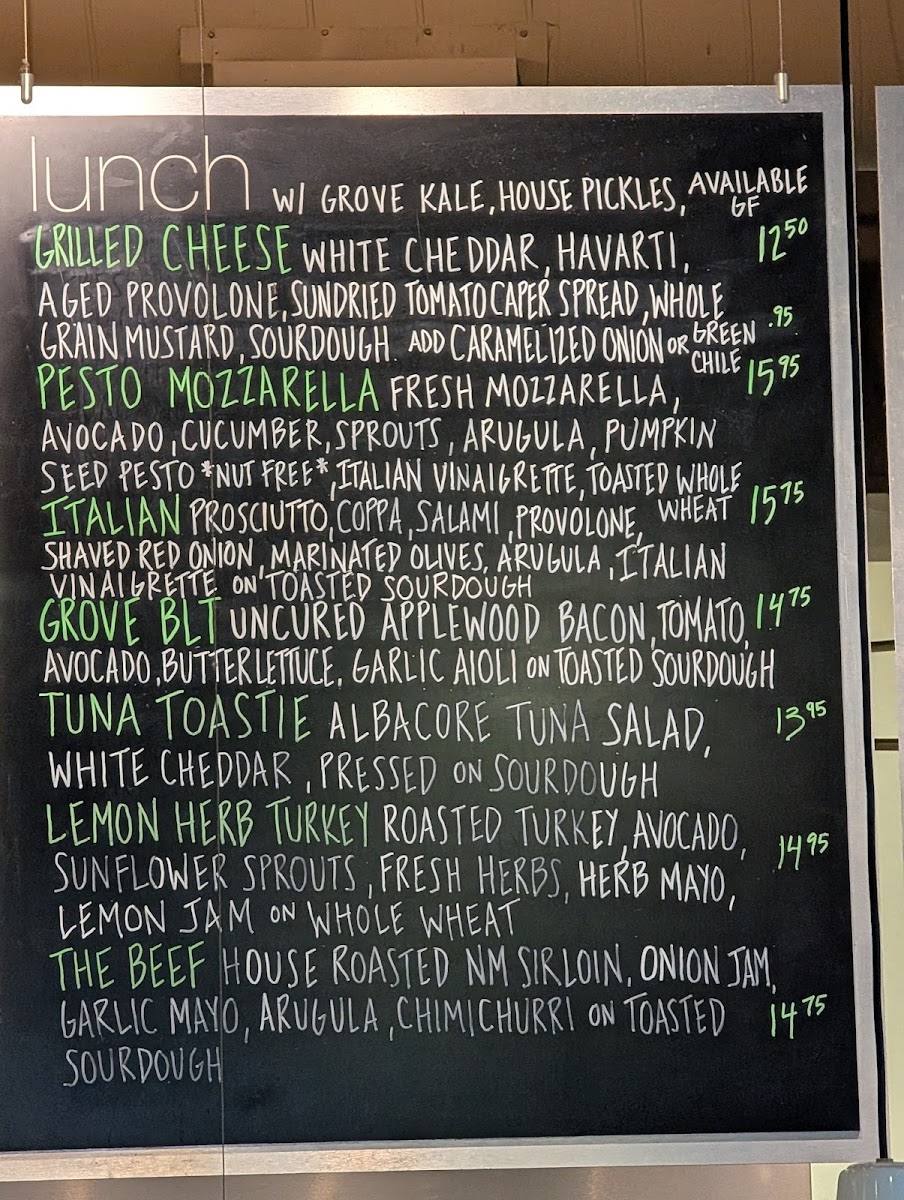 lunch W/ GROVE KALE, HOUSE PICKLES, AVAILABLE GF
GRILLED CHEESE WHITE CHEDDAR, HAVARTI, 12⁵⁰
AGED PROVOLONE, SUNDRIED TOMATO CAPER SPREAD, WHOLE
GRAIN MUSTARD, SOURDOUGH ADD CARAMELIZED ONION OR GREEN CHILE .95
PESTO MOZZARELLA FRESH MOZZARELLA, 15⁹⁵
AVOCADO, CUCUMBER, SPROUTS, ARUGULA, PUMPKIN
SEED PESTO *NUT FREE*, ITALIAN VINAIGRETTE, TOASTED WHOLE WHEAT
ITALIAN PROSCIUTTO, COPPA, SALAMI, PROVOLONE, 15⁷⁵
SHAVED RED ONION, MARINATED OLIVES, ARUGULA, ITALIAN
VINAIGRETTE ON TOASTED SOURDOUGH
GROVE BLT UNCURED APPLEWOOD BACON, TOMATO, 14⁷⁵
AVOCADO, BUTTER LETTUCE, GARLIC AIOLI ON TOASTED SOURDOUGH
TUNA TOASTIE ALBACORE TUNA SALAD, 13⁹⁵
WHITE CHEDDAR, PRESSED ON SOURDOUGH
LEMON HERB TURKEY ROASTED TURKEY, AVOCADO, 14⁹⁵
SUNFLOWER SPROUTS, FRESH HERBS, HERB MAYO,
LEMON JAM ON WHOLE WHEAT
THE BEEF HOUSE ROASTED NM SIRLOIN, ONION JAM,
GARLIC MAYO, ARUGULA, CHIMICHURRI ON TOASTED 14⁷⁵
SOURDOUGH